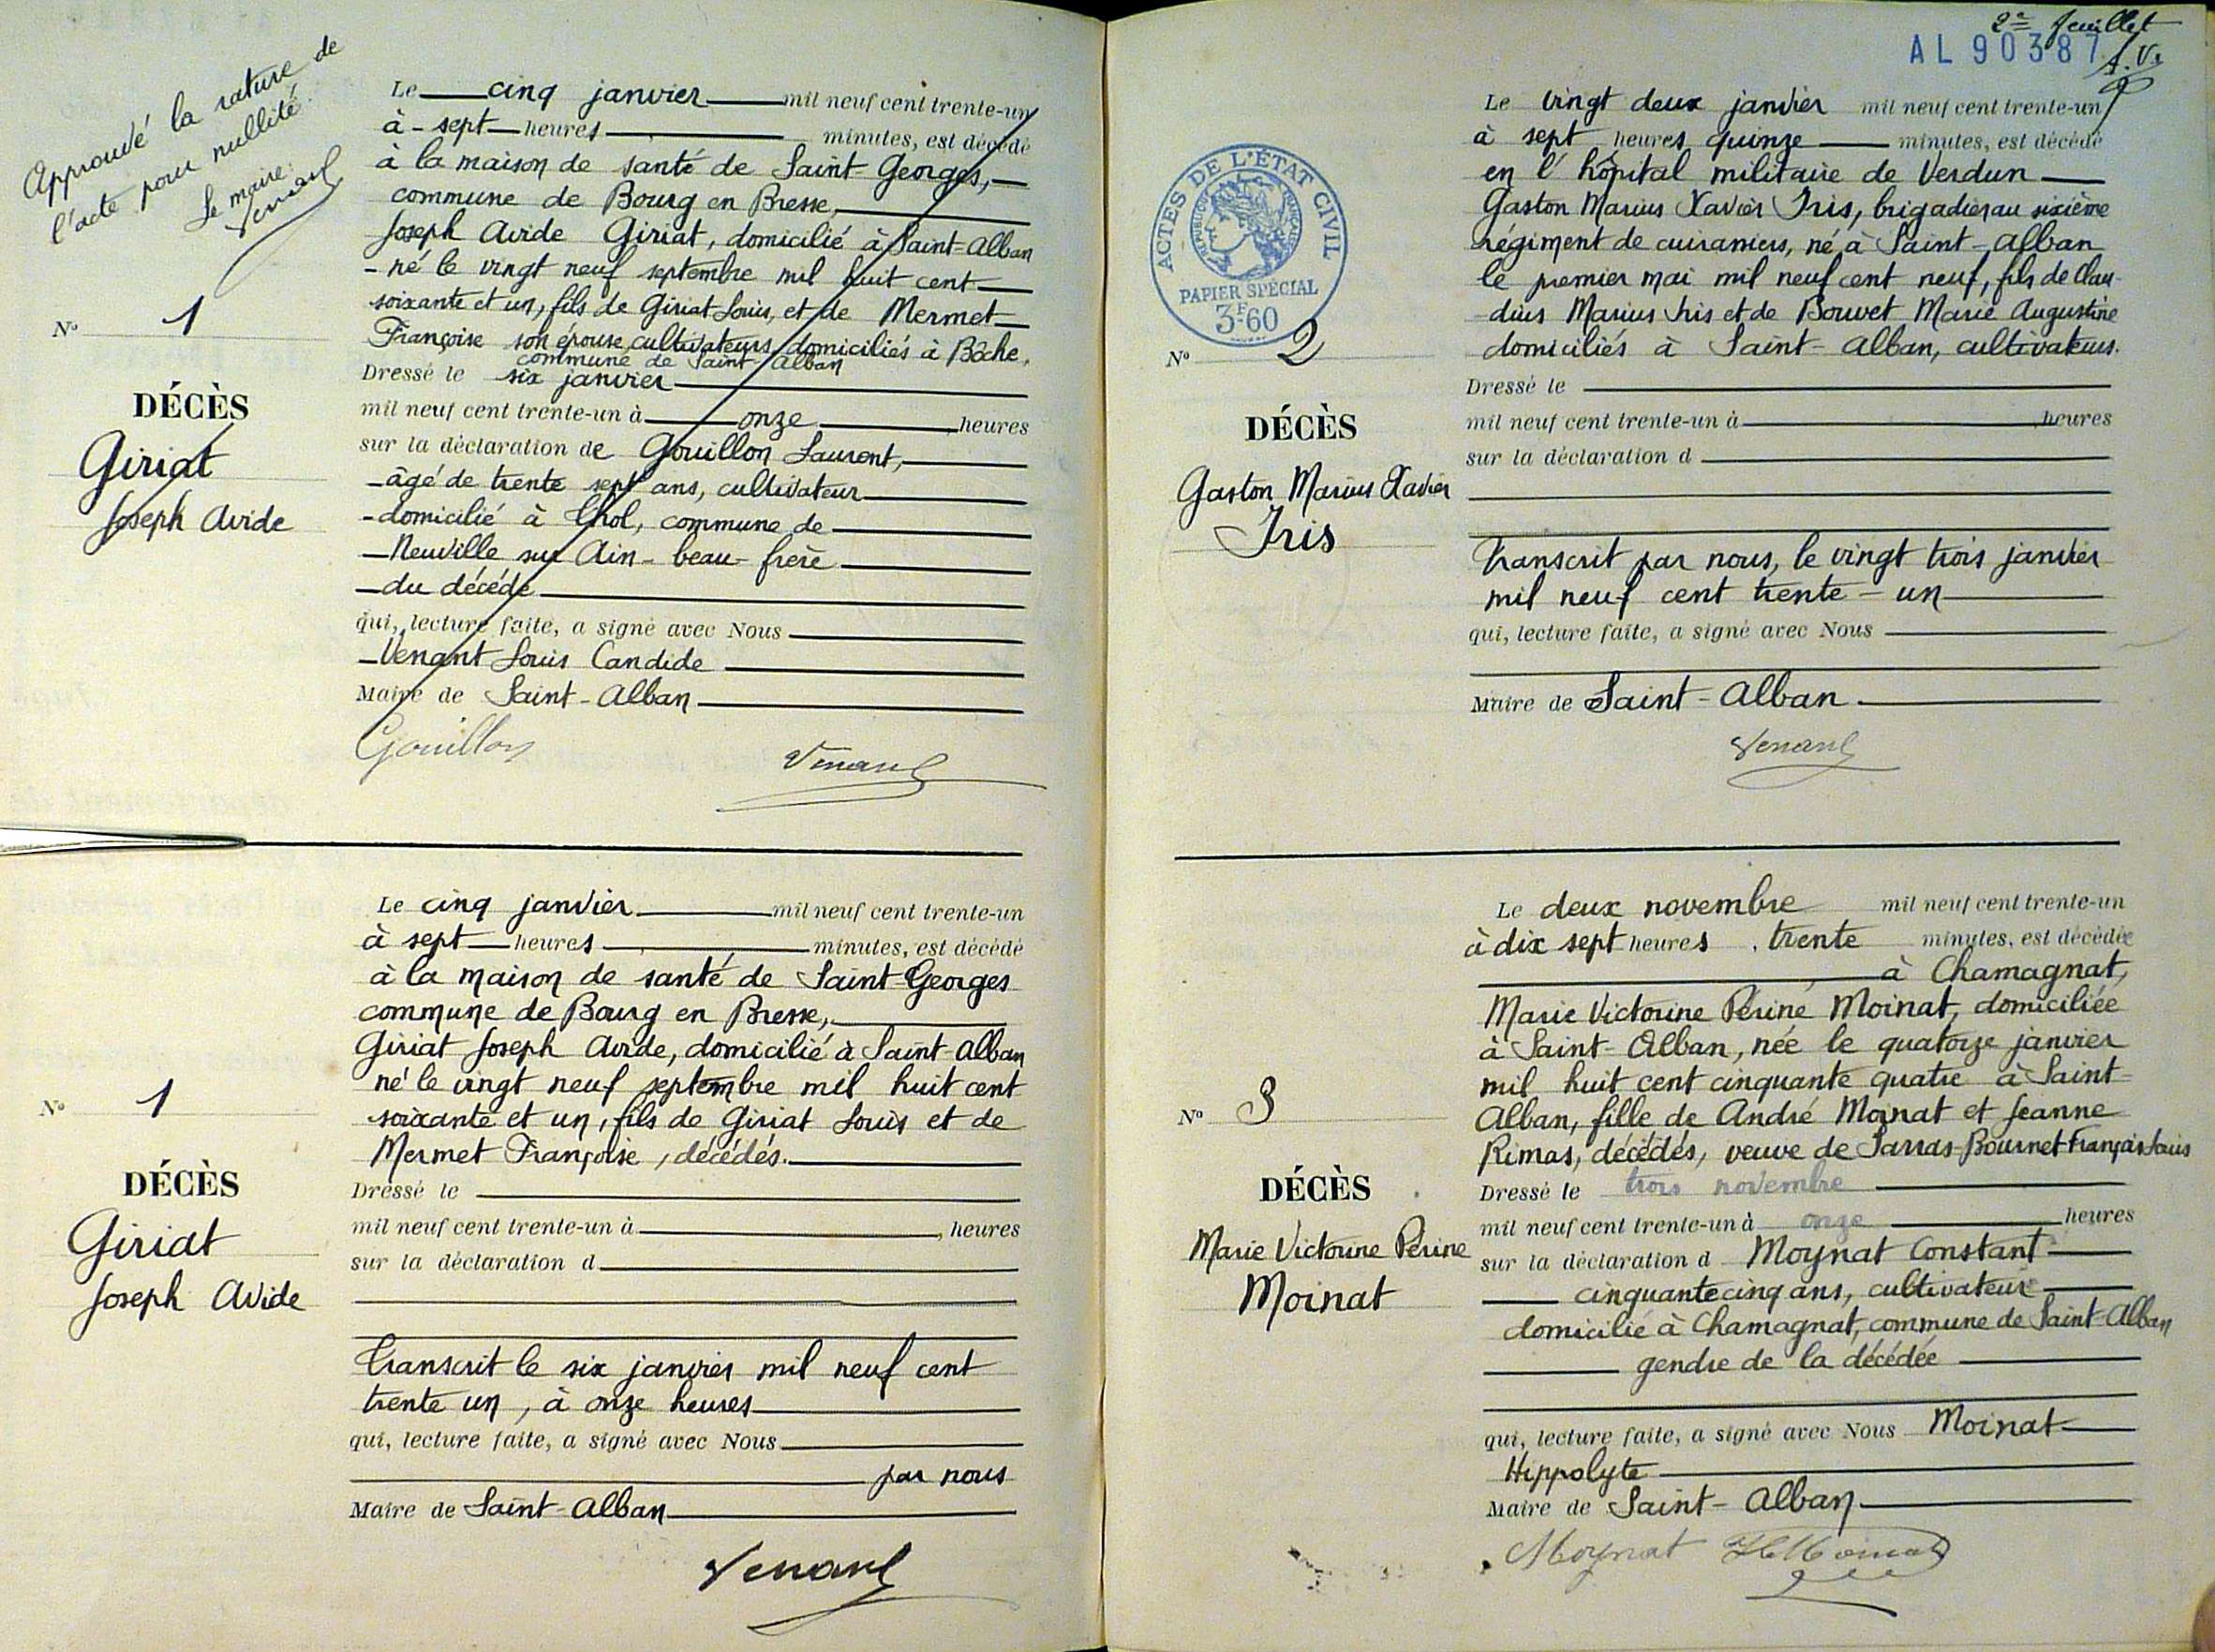 Approuvé la rature de
l'acte pour nullité.
Le maire:
Venant
Nº 1
DÉCÈS
Giriat
Joseph Avide
Le cinq janvier mil neuf cent trente-un
à sept heures minutes, est décédé
à la maison de santé de Saint-Georges,
commune de Bourg en Bresse,
Joseph Avide Giriat, domicilié à Saint-Alban
- né le vingt neuf septembre mil huit cent
soixante et un, fils de Giriat Louis, et de Mermet
Françoise son épouse cultivateurs domiciliés à Bôche,
commune de Saint Alban
Dressé le six janvier
mil neuf cent trente-un à onze heures
sur la déclaration de Gouillon Laurent,
âgé de trente sept ans, cultivateur
- domicilié à Thol, commune de
Neuville sur Ain - beau-frère
du décédé
qui, lecture faite, a signé avec Nous
Venant Louis Candide
Maire de Saint-Alban
Gouillon Venant
Nº 1
DÉCÈS
Giriat
Joseph Avide
Le cinq janvier mil neuf cent trente-un
à sept heures minutes, est décédé
à la maison de santé de Saint-Georges
commune de Bourg en Bresse,
Giriat Joseph Avide, domicilié à Saint-Alban
né le vingt neuf septembre mil huit cent
soixante et un, fils de Giriat Louis et de
Mermet Françoise, décédés.
Dressé le
mil neuf cent trente-un à , heures
sur la déclaration d
Transcrit le six janvier mil neuf cent
trente un, à onze heures
qui, lecture faite, a signé avec Nous
par nous
Maire de Saint-Alban
Venant
2e feuillet
AL 90387
A. V.
ACTES DE L'ÉTAT CIVIL
RÉPUBLIQUE FRANÇAISE
PAPIER SPÉCIAL
3F60
Nº 2
DÉCÈS
Gaston Marius Xavier
Iris
Le vingt deux janvier mil neuf cent trente-un
à sept heures quinze minutes, est décédé
en l'hôpital militaire de Verdun
Gaston Marius Xavier Iris, brigadier au sixième
régiment de cuirassiers, né à Saint-Alban
le premier mai mil neuf cent neuf, fils de Clau-
dius Marius Iris et de Bouvet Marie Augustine
domiciliés à Saint-Alban, cultivateurs.
Dressé le
mil neuf cent trente-un à , heures
sur la déclaration d
Transcrit par nous, le vingt trois janvier
mil neuf cent trente-un
qui, lecture faite, a signé avec Nous
Maire de Saint-Alban
Venant
Nº 3
DÉCÈS
Marie Victorine Périne
Moinat
Le deux novembre mil neuf cent trente-un
à dix sept heures trente minutes, est décédée
à Chamagnat,
Marie Victorine Périne Moinat, domiciliée
à Saint-Alban, née le quatorze janvier
mil huit cent cinquante quatre à Saint-
Alban, fille de André Moinat et Jeanne
Rimas, décédés, veuve de Sarras-Bournet François Louis
Dressé le trois novembre
mil neuf cent trente-un à onze heures
sur la déclaration d Moynat Constant
cinquante cinq ans, cultivateur
domicilié à Chamagnat, commune de Saint-Alban
gendre de la décédée
qui, lecture faite, a signé avec Nous Moinat
Hippolyte
Maire de Saint-Alban
Moynat H Moinat